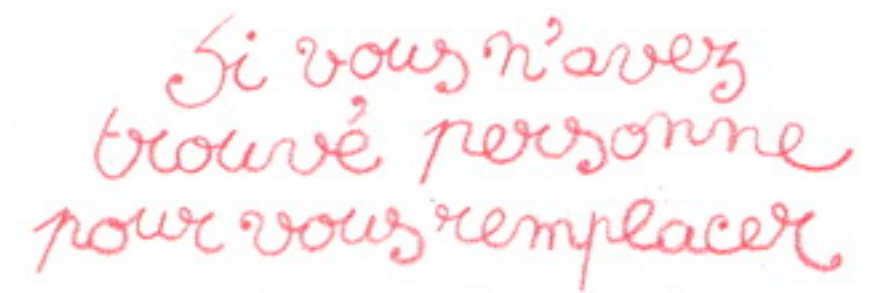 Si vous n'avez
trouvé personne
pour vous remplacer